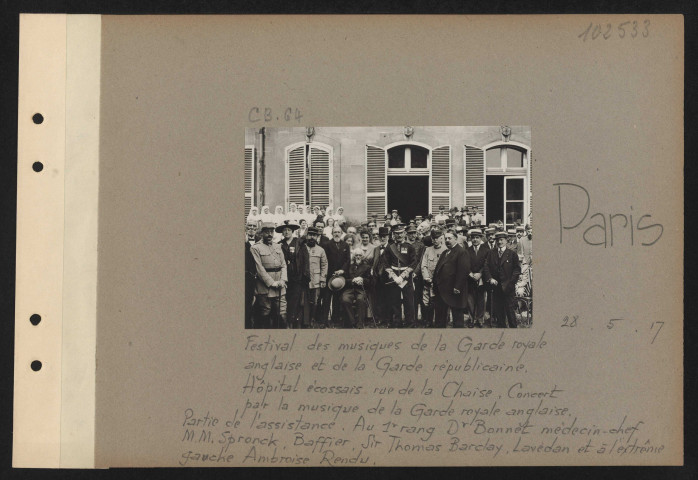 102533
CB.64
Paris
28 . 5 . 17
Festival des musiques de la Garde royale
anglaise et de la Garde républicaine.
Hôpital écossais. rue de la Chaise. Concert
par la musique de la Garde royale anglaise.
Partie de l'assistance. Au 1er rang Dr Bonnet médecin-chef
M.M. Spronck, Baffier, Sir Thomas Barclay, Lavedan et à l'extrême
gauche Ambroise Rendu.